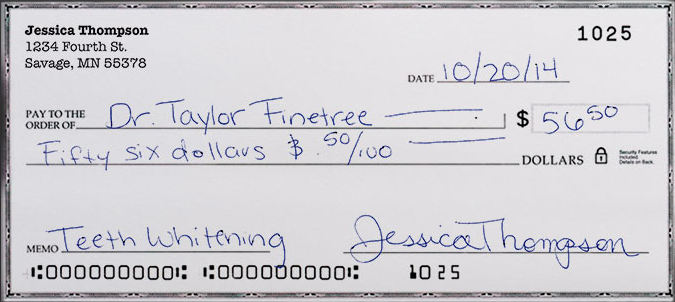 Jessica Thompson
1234 Fourth St.
Savage, MN 55378
1025
DATE 10/20/14
PAY TO THE
ORDER OF Dr. Taylor Finetree $ 56 50
Fifty six dollars $ .50/100 DOLLARS
Security Features
Included.
Details on Back.
MEMO Teeth Whitening Jessica Thompson
⑆000000000⑆ ⑆000000000⑆ 1025